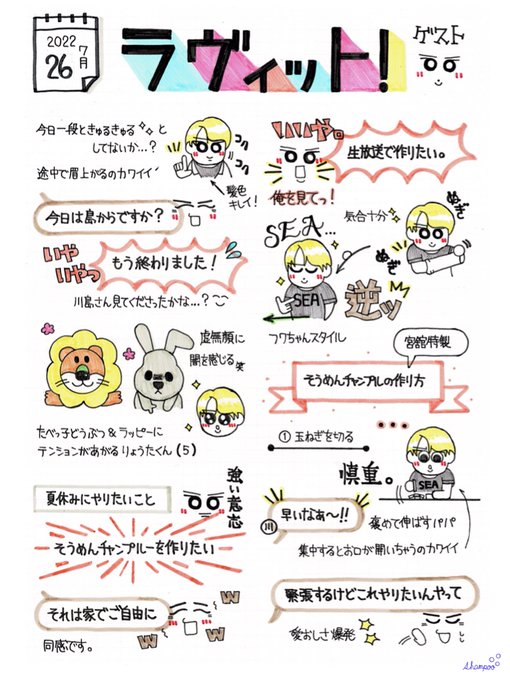 2022
7月
26
ラヴィット!
ゲスト
今日一段ときゅるきゅると
してないか…?
途中で眉上がるのカワイイ
髪色
キレイ!
今日は島からですか?
いや
いやっ
もう終わりました!
川島さん見てくださったかな…?
虚無顔に
闇を感じる笑
たべっ子どうぶつ&ラッピーに
テンションがあがるりょうたくん(5)
夏休みにやりたいこと
強い意志
そうめんチャンプルーを作りたい
それは家でご自由に
W
W
W
W
同感です。
いいや。
生放送で作りたい。
俺を見てっ!
SEA…
気合十分
ぬぎ
ぬぎ
SEA
逆ッ
フワちゃんスタイル
宮舘特製
そうめんチャンプルの作り方
①玉ねぎを切る
慎重。
SEA
川
早いなあ〜!!
褒めて伸ばすパパ
集中するとお口が開いちゃうのカワイイ
緊張するけどこれやりたいんやって
愛おしさ爆発
shampoo